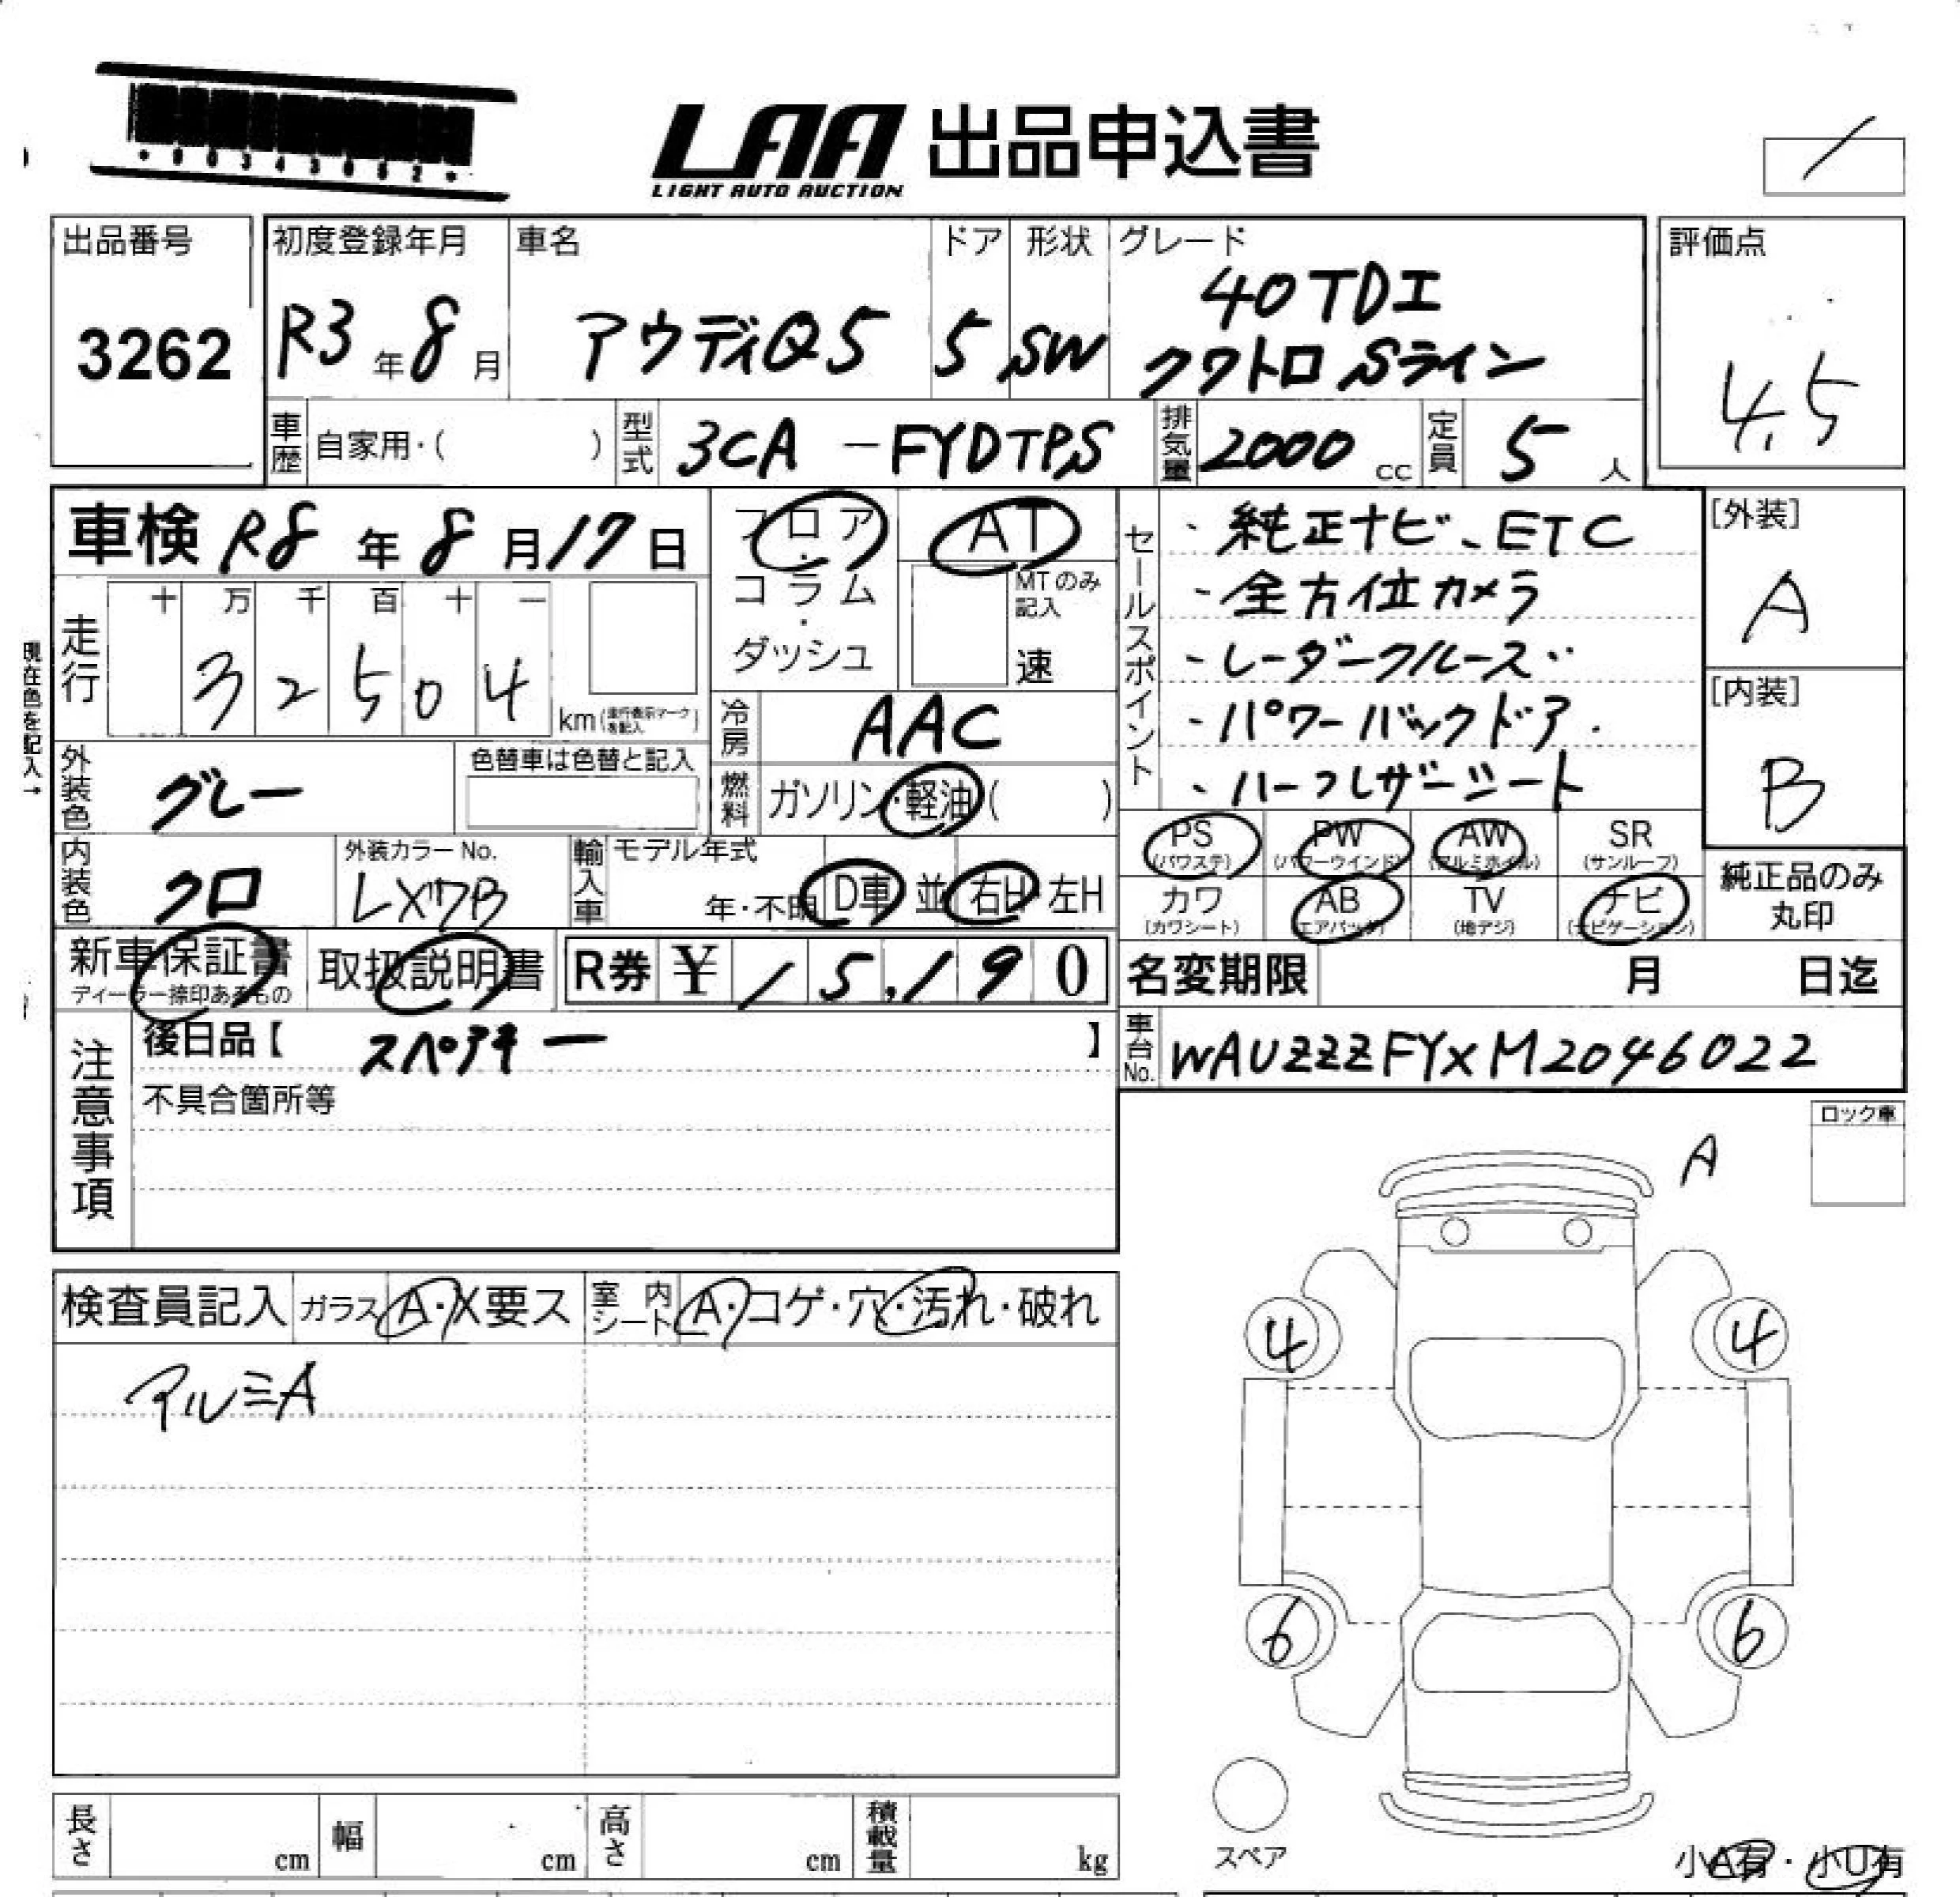 *00343052*
LAA 出品申込書
LIGHT AUTO AUCTION
出品番号
3262
初度登録年月
R3年8月
車名
アウディQ5
ドア
5
形状
SW
グレード
40TDI
クワトロ Sライン
評価点
4.5
車歴 自家用・( )
型式 3CA-FYDTPS
排気量 2000 cc
定員 5 人
車検 R8年8月17日
フロア・コラム・ダッシュ
AT
MTのみ記入
速
セールスポイント
・純正ナビ、ETC
・全方位カメラ
・レーダークルーズ
・パワーバックドア
・ハーフレザーシート
[外装]
A
[内装]
B
現在色を記入→
走行
十 万 千 百 十 一
32504
km(走行表示マークを記入)
冷房 AAC
外装色 グレー
色替車は色替と記入
燃料 ガソリン・軽油( )
内装色 クロ
外装カラーNo.
LX7B
輸入車 モデル年式
年・不明
D車 並 右H・左H
PS
(パワステ)
PW
(パワーウインド)
AW
(アルミホイル)
SR
(サンルーフ)
カワ
(カワシート)
AB
(エアバッグ)
TV
(地デジ)
ナビ
(ナビゲーション)
純正品のみ
丸印
新車保証書
ディーラー捺印あるもの
取扱説明書
R券 ¥ 15,190
名変期限 月 日迄
注意事項
後日品【 スペアキー 】
不具合箇所等
車台No. WAUZZZFYXM2046022
ロック車
A
検査員記入 ガラス A・X要ス
室内シート A・コゲ・穴・汚れ・破れ
アルミA
4 4
6 6
スペア
小A有・小U有
長さ cm
幅 cm
高さ cm
積載量 kg